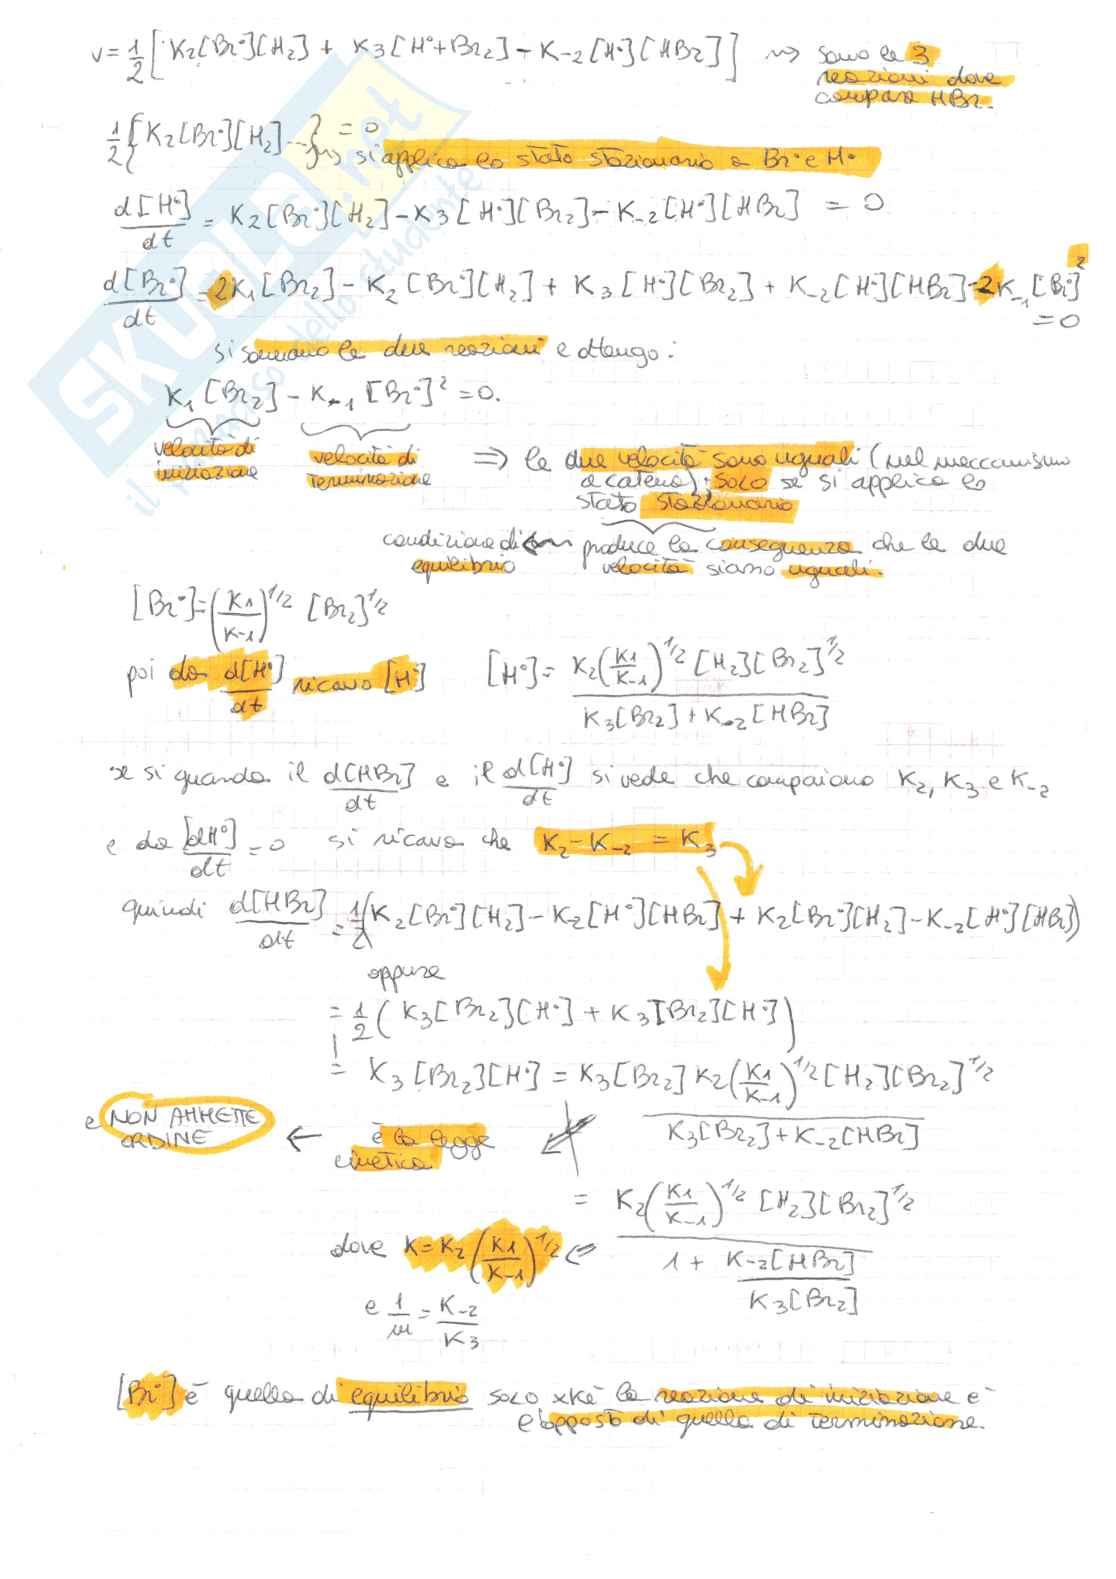 v = 1/2 [K2[Br•][H2] + K3[H•+Br2] - K-2[H•][HBr]] ~> sono le 3
reazioni dove
compare HBr.
1/2 {K2[Br•][H2]...} = 0
~> si applica lo stato stazionario a Br• e H•
d[H•]/dt = K2[Br•][H2] - K3[H•][Br2] - K-2[H•][HBr] = 0
d[Br•]/dt = 2K1[Br2] - K2[Br•][H2] + K3[H•][Br2] + K-2[H•][HBr] - 2K-1[Br•]²
= 0
si sommano le due reazioni e ottengo:
K1[Br2] - K-1[Br•]² = 0.
velocità di iniziazione
velocità di terminazione
=> le due velocità sono uguali (nel meccanismo
a catena) solo se si applica lo
stato stazionario
condizione di equilibrio
produce la conseguenza che le due
velocità siano uguali.
[Br•] = (K1/K-1)^1/2 [Br2]^1/2
poi da d[H•]/dt ricavo [H•]
[H•] = K2(K1/K-1)^1/2 [H2][Br2]^1/2 / K3[Br2] + K-2[HBr]
se si guarda il d[HBr]/dt e il d[H•]/dt si vede che compaiono K2, K3 e K-2
e da [dH•]/dt = 0 si ricava che K2 - K-2 = K3
quindi d[HBr]/dt = 1/2 (K2[Br•][H2] - K2[H•][HBr] + K2[Br•][H2] - K-2[H•][HBr])
oppure
= 1/2 (K3[Br2][H•] + K3[Br2][H•])
= K3[Br2][H•] = K3[Br2] K2(K1/K-1)^1/2 [H2][Br2]^1/2 / K3[Br2] + K-2[HBr]
e NON AMMETTE
ORDINE
← è la legge
cinetica
= K2(K1/K-1)^1/2 [H2][Br2]^1/2 / 1 + K-2[HBr]/K3[Br2]
dove K = K2(K1/K-1)^1/2 <=
e 1/m = K-2/K3
[Br•] è quella di equilibrio solo xké la reazione di iniziazione è
l'opposto di quella di terminazione.
SKUOLA.net
il paradiso dello studente